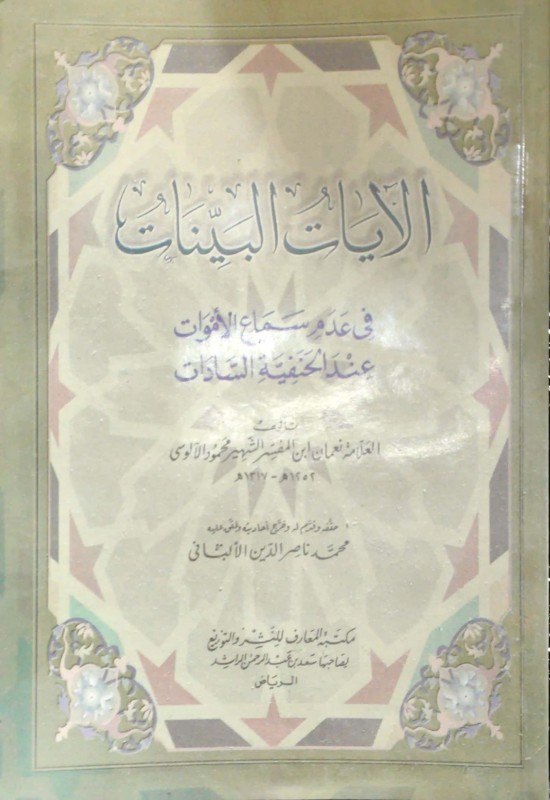 الآيَاتُ البَيِّنَاتُ
في عَدَمِ سَمَاعِ الأَمْوَاتِ
عِنْدَ الحَنَفِيَّةِ السَّادَاتِ
تأليف
العلّامة نعمان ابن المفسّر الشهير محمود الآلوسي
١٢٥٢هـ - ١٣١٧هـ
حققه وقدّم له وخرّج أحاديثه وعلّق عليه
محمّد ناصر الدّين الألباني
مكتبة المعارف للنّشر والتوزيع
لصاحبها سعد بن عبد الرحمن الراشد
الرياض